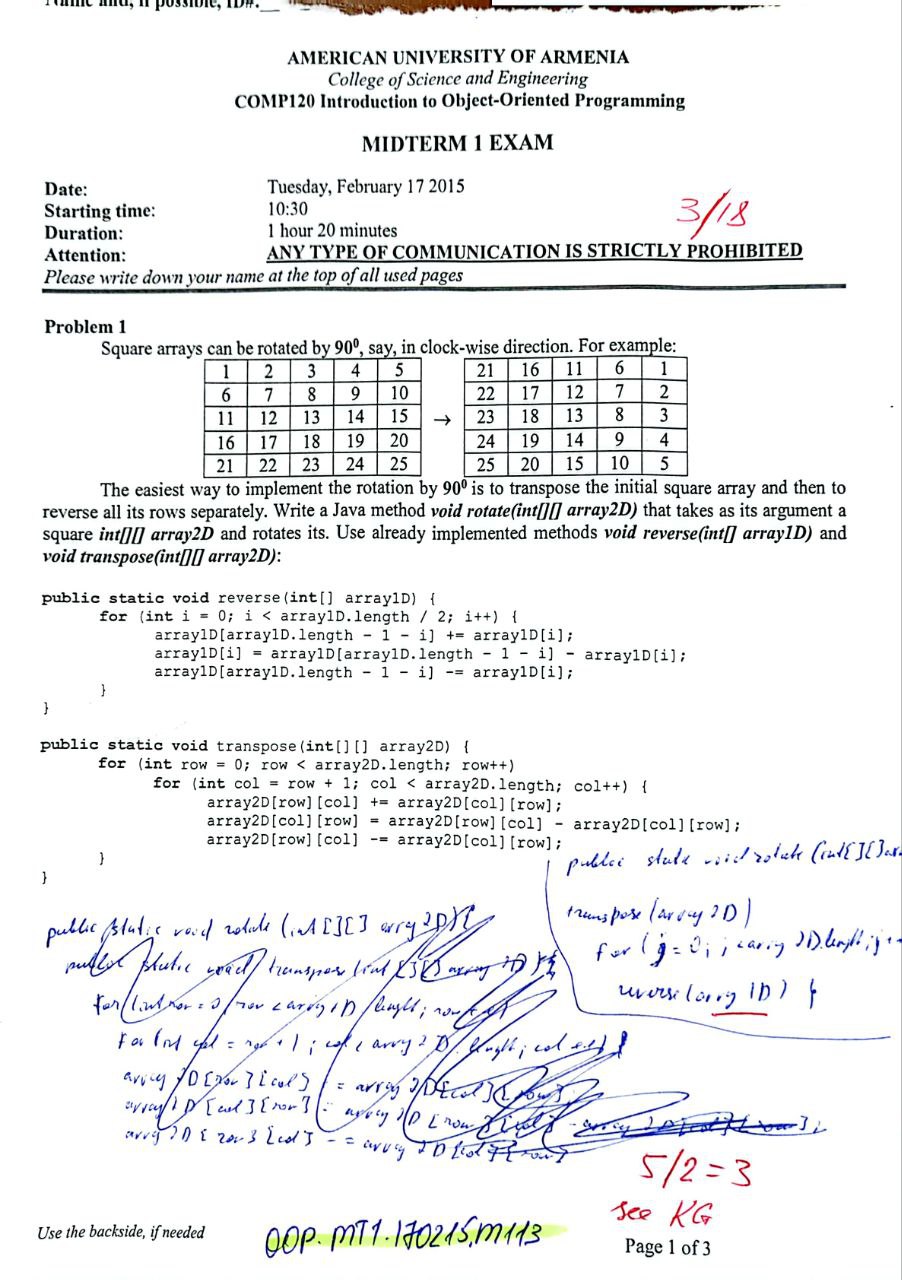 Name and, if possible, ID#.
AMERICAN UNIVERSITY OF ARMENIA
College of Science and Engineering
COMP120 Introduction to Object-Oriented Programming
MIDTERM 1 EXAM
Date: Tuesday, February 17 2015
Starting time: 10:30
3/18
Duration: 1 hour 20 minutes
Attention: ANY TYPE OF COMMUNICATION IS STRICTLY PROHIBITED
Please write down your name at the top of all used pages
Problem 1
Square arrays can be rotated by 90⁰, say, in clock-wise direction. For example:
1 2 3 4 5 21 16 11 6 1
6 7 8 9 10 22 17 12 7 2
11 12 13 14 15 → 23 18 13 8 3
16 17 18 19 20 24 19 14 9 4
21 22 23 24 25 25 20 15 10 5
The easiest way to implement the rotation by 90⁰ is to transpose the initial square array and then to
reverse all its rows separately. Write a Java method void rotate(int[][] array2D) that takes as its argument a
square int[][] array2D and rotates its. Use already implemented methods void reverse(int[] array1D) and
void transpose(int[][] array2D):
public static void reverse(int[] array1D) {
for (int i = 0; i < array1D.length / 2; i++) {
array1D[array1D.length - 1 - i] += array1D[i];
array1D[i] = array1D[array1D.length - 1 - i] - array1D[i];
array1D[array1D.length - 1 - i] -= array1D[i];
}
}
public static void transpose(int[][] array2D) {
for (int row = 0; row < array2D.length; row++)
for (int col = row + 1; col < array2D.length; col++) {
array2D[row][col] += array2D[col][row];
array2D[col][row] = array2D[row][col] - array2D[col][row];
array2D[row][col] -= array2D[col][row];
}
}
public static void rotate (int[][]
transpose (array 2D)
for (j = 0;
reverse (arry 1D) }
public static void rotate (int [][] arrcy 2D) {
public static void transpose (int [][] array 2D) {
for (int row = 0; row < array 2D length; row
for (int col = row + 1; col < array 2D. length; col
array 2D [row] [col] = array 2D [col] [row]
array 2D [col] [row] = array 2D [row] [col] - array 2D [col] [row];
array 2D [row] [col] -= array 2D [col] [row]
5/2=3
see KG
Use the backside, if needed
OOP. MT1. 170215, M113
Page 1 of 3